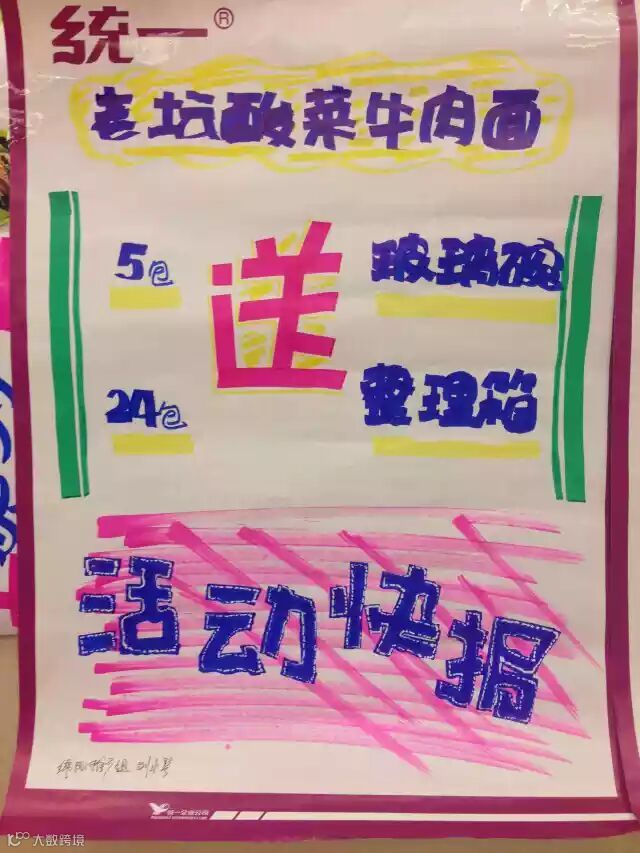 统一®
老坛酸菜牛肉面
5包 送 玻璃碗
24包 整理箱
活动快报
统一企业公司
大数跨境